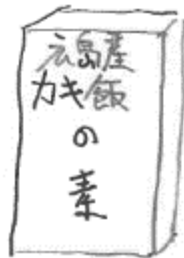 広島産
カキ飯
の
素